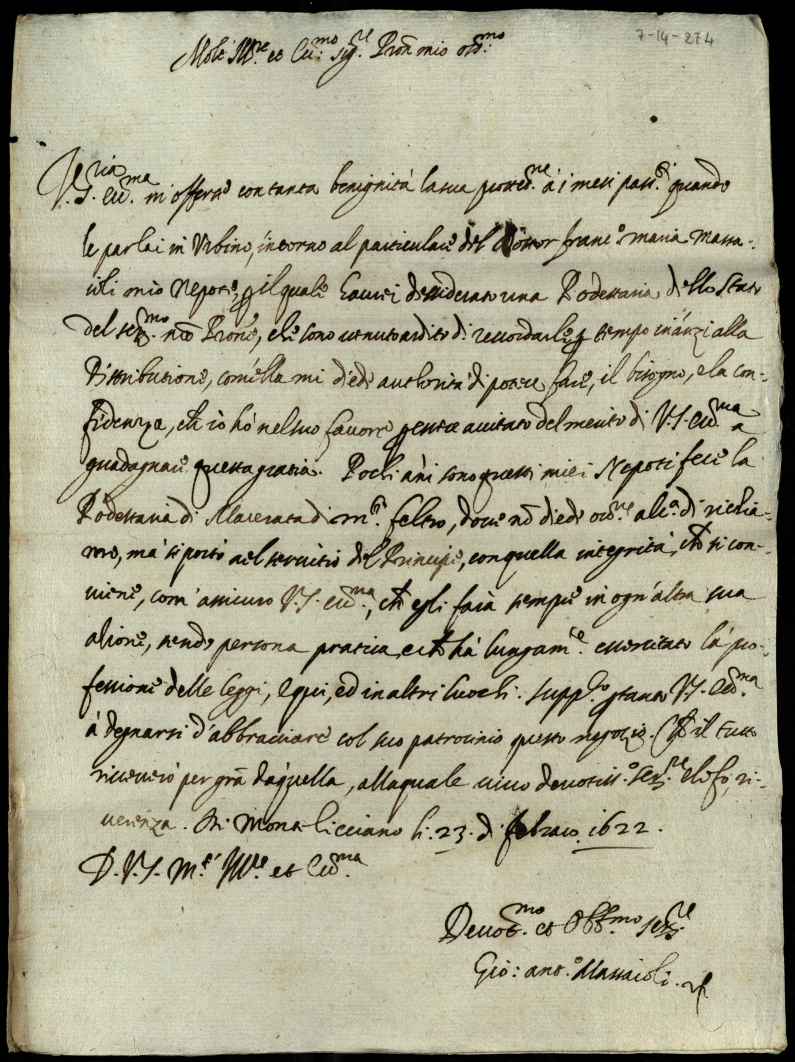 7-14-274
Molt' Ill.re et Ecc.mo sig.re Pron mio oss.mo
V.S. Ecc.ma m'offerse con tanta benignità la sua protet.ne à i mesi pass.ti quando
le parlai in Urbino, intorno al particulare del Dottor Franc.o Maria Massa-
ioli mio Nepote, p il quale haverei desiderato una Podestaria dello Stato
del ser.mo nro Prone, che sono venuto ardito di recordarle p tempo inanzi alla
Distributione, com'ella mi diede authorità di poter fare, il bisogno, e la con-
fidenza, ch io hò nel suo favore p esser avitato del merito di V.S. Ecc.ma a
guadagnare questa gratia. Pochi ani sono questi miei Nepoti fece la
Podestaria di Macerata di m.te feltro, dove nō diede occ.ne alc.a di richia-
mo, mà si portò nel servitio del Principe, con quella integrità, ch si con-
viene, com' assicuro V.S. Ecc.ma, ch egli farà sempre in ogn'altra sua
atione, sendo persona pratica, e ch hà lungam.te essercitato la pro-
fessione delle leggi, e qui, ed in altri luochi. supp.co p tanto V.S. Ecc.ma
à degnarsi d'abbracciare col suo patrocinio questo negotio. Ch il tutto
riceverò per grā da quella, alla quale vivo devotiss.o ser.re e le fò, ri-
verenza. Di Monte licciano li. 23. d febraro 1622.
D. V. S. M.to Ill.re et Ecc.ma
Devot.mo et Obb.mo ser.re
Gio: ant.o Massaioli.